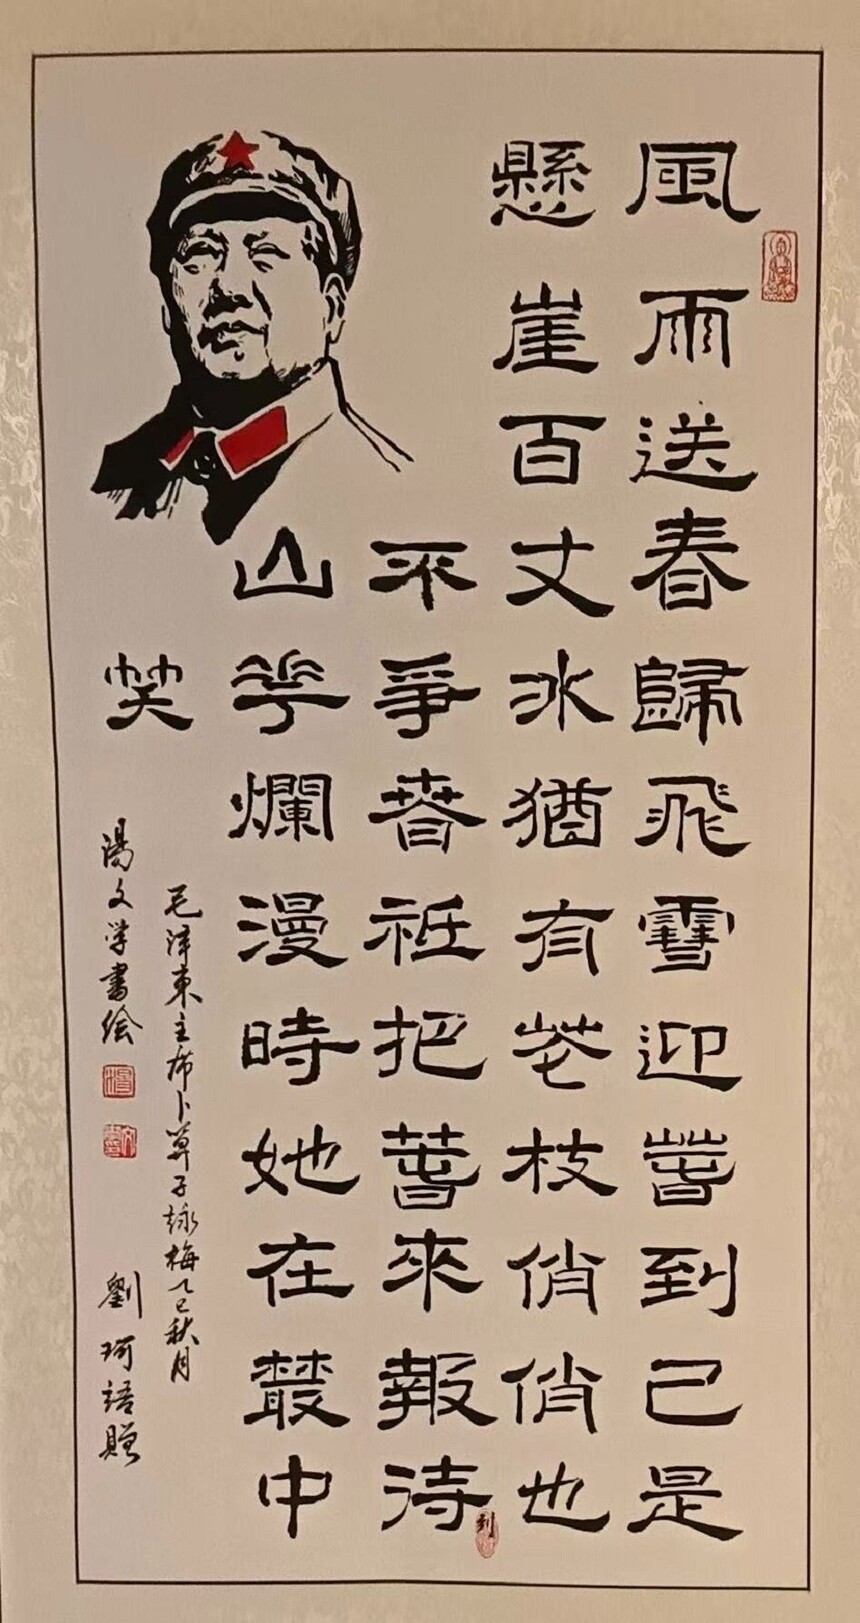 風雨送春歸飛雪迎春到已是
懸崖百丈冰猶有花枝俏俏也
不爭春祗把春來報待
到
山花爛漫時她在叢中
笑
毛泽東主席卜算子詠梅乙巳秋月
湯文学書绘
劉珂語贈